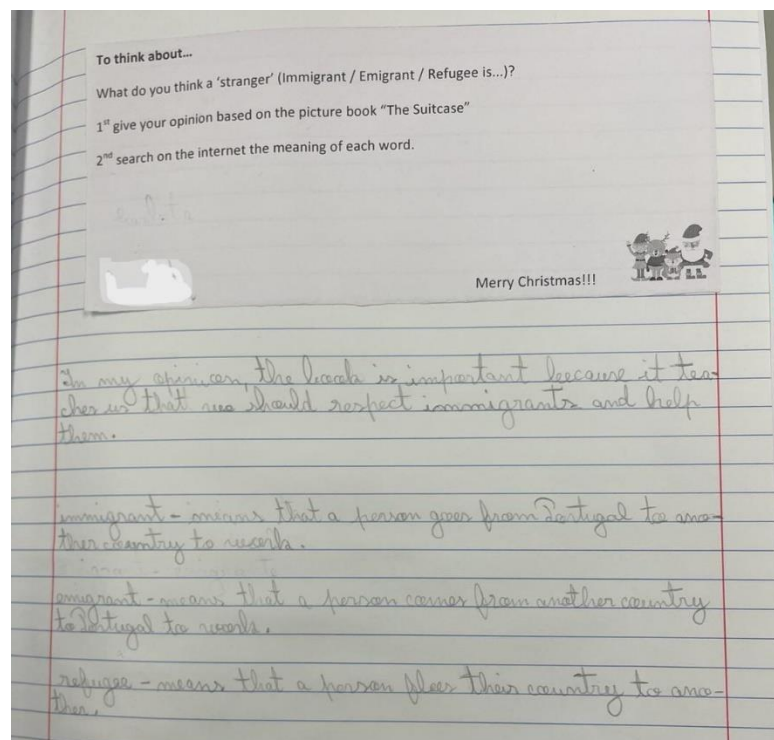 To think about...
What do you think a 'stranger' (Immigrant / Emigrant / Refugee is...)?
1st give your opinion based on the picture book "The Suitcase"
2nd search on the internet the meaning of each word.
Merry Christmas!!!
In my opinion, the book is important because it tea-
ches us that we should respect immigrants and help
them.
immigrant - means that a person goes from Portugal to ano-
ther country to work.
emigrant - means that a person comes from another country
to Portugal to work.
refugee - means that a person flees their country to ano-
ther.